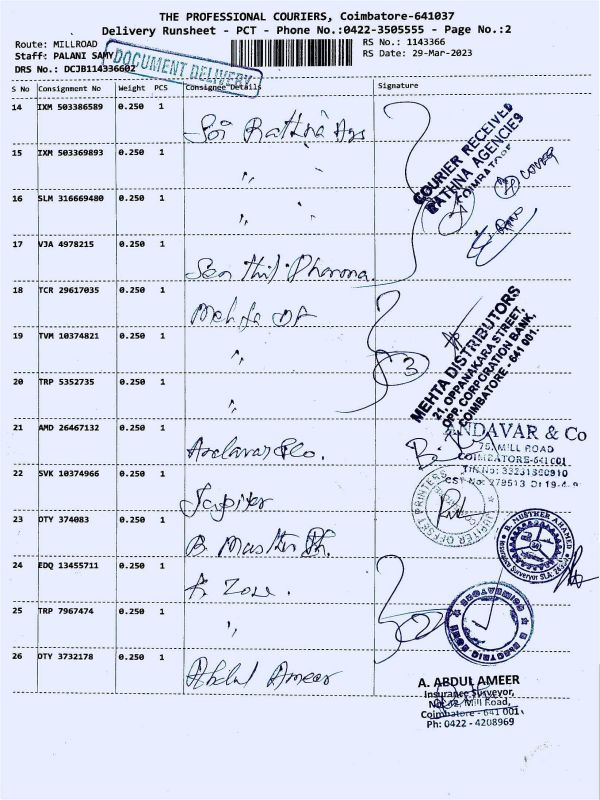 THE PROFESSIONAL COURIERS, Coimbatore-641037
Delivery Runsheet - PCT - Phone No.:0422-3505555 - Page No.:2
Route: MILLROAD
RS No.: 1143366
Staff: PALANI SAMY
RS Date: 29-Mar-2023
DRS No.: DCJB114336602
DOCUMENT DELIVERY
S No Consignment No Weight PCS Consignee Details Signature
14 IXM 503386589 0.250 1 Sri Rathna Ags
COURIER RECEIVED
RATHNA AGENCIES
COIMBATORE
4 COVER
15 IXM 503369893 0.250 1 ,,
16 SLM 316669480 0.250 1 ,,
17 VJA 4978215 0.250 1 Senthil Pharma.
18 TCR 29617035 0.250 1 Mehta
19 TVM 10374821 0.250 1 ,,
3
MEHTA DISTRIBUTORS
21, OPPANAKARA STREET,
OPP. CORPORATION BANK,
COIMBATORE - 641 001.
20 TRP 5352735 0.250 1 ,,
21 AMD 26467132 0.250 1 Andavar & Co.
ANDAVAR & Co
75, MILL ROAD
COIMBATORE-641 001
22 SVK 10374966 0.250 1 Jupiter
JUPITER OFFSET PRINTERS
23 OTY 374083 0.250 1
B. MUSTHER AHAMED
Insurance Surveyor
24 EDQ 13455711 0.250 1 Zone.
25 TRP 7967474 0.250 1 ,,
26 OTY 3732178 0.250 1 Abdul Ameer
A. ABDUL AMEER
Insurance Surveyor,
Mill Road,
Coimbatore - 641 001.
Ph: 0422 - 4208969